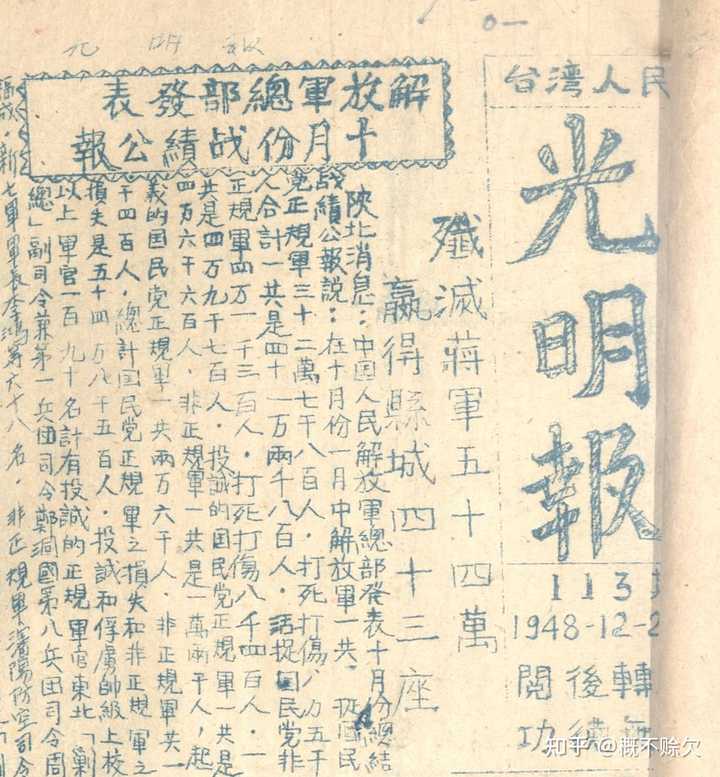 光明報
台湾人民
光明報
113
1948-12-2
閱後轉
功
解放軍總部發表
十月份战績公報
殲滅蔣軍五十四萬
贏得縣城四十三座
陝北消息：中国人民解放軍總部發表十月份總結
战績公報說：在十月份一月中解放軍一共、国民
党正規軍三十二萬七千八百人，打死打傷八万五千
人合計一共是四十一万兩千八百人，活捉国民党非
正規軍四万一千三百人，打死打傷八千四百人，一
共是四万九千七百人，投誠的国民党正規軍一共是
四万六千六百人，非正規軍一共是一萬兩千人，起
義的国民党正規軍一共兩万六千人，非正規軍共一
千四百人，總計国民党正規軍之損失和非正規軍之
損失是五十四万八千五百人，投誠和俘虜師級上校
以上軍官一百九十名計有投誠的正規軍官東北「剿
總」副司令兼第一兵团司令鄭洞國第八兵团司令周
福成，新七軍軍長李鴻等六十八名，非正規軍瀋陽防空司令
知乎 @概不赊欠